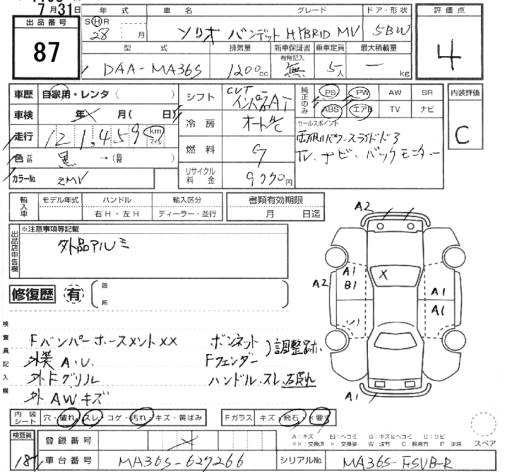 月31日
出品番号
87
年式
車名
グレード
ドア・形状
評価点
SⒽR
28 月
ソリオ バンディット HYBRID MV
5BW
4
型式
排気量
新車保証書
有無記入
乗車定員
最大積載量
DAA-MA36S
1200cc
無
5人
— kg
車歴
自家用・レンタ( )
シフト
CVT
インパネAT
純正のみ
PS PW AW SR
ABS エアB TV ナビ
内装評価
C
車検
年 月( 日)
冷房
オートAC
セールスポイント
両側パワースライドドア
TV、ナビ・バックモニター
走行
121,459 km
燃料
G
色
黒 →
リサイクル料金
9,990円
カラーNo
ZMV
輸入車
モデル年式
ハンドル
輸入区分
右H・左H
ディーラー・並行
書類有効期限
月 日迄
出品店申告欄
※注意事項等記載
外品アルミ
修復歴
有
箇所
A2
A1
B1
X
A2
A1
A1
A2
検査員記入欄
Fバンパーホースメント××
外装 A.U.
外Fグリル
外AWキズ
ボンネット
Fフェンダー
調整跡
ハンドルスレ
内装シート
穴・破れ・スレ・コゲ・汚れ・キズ・黄ばみ
Fガラス
キズ・飛石
スペア
検査員
181
登録番号
車台番号
MA36S-627266
シリアルNo
MA36S-FSVB-R